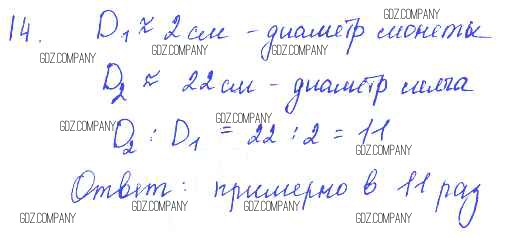 14. D₁ ≈ 2 см - диаметр монеты
D₂ ≈ 22 см - диаметр мяча
D₂ : D₁ = 22 : 2 = 11
Ответ: примерно в 11 раз
GDZ.COMPANY
GDZ.COMPANY
GDZ.COMPANY
GDZ.COMPANY
GDZ.COMPANY
GDZ.COMPANY
GDZ.COMPANY
GDZ.COMPANY
GDZ.COMPANY
GDZ.COMPANY
GDZ.COMPANY